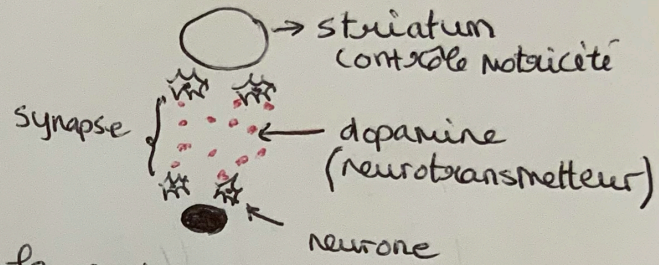 striatum
contrôle motricité
synapse
dopamine
(neurotransmetteur)
neurone